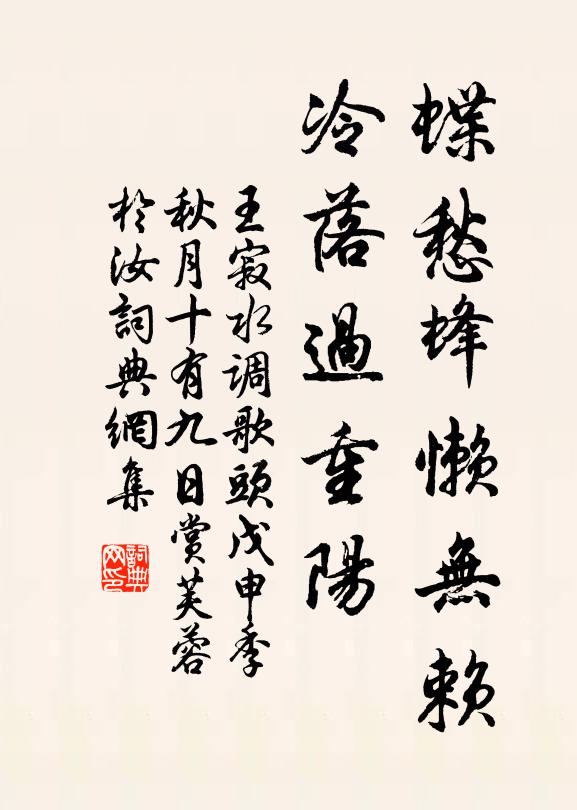 蝶愁蜂懶無賴
冷落過重陽
王寂水调歌頭戊申季
秋月十有九日賞芙蓉
於汝詞典網集
詞典網印